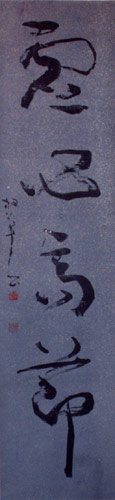 虚心高節